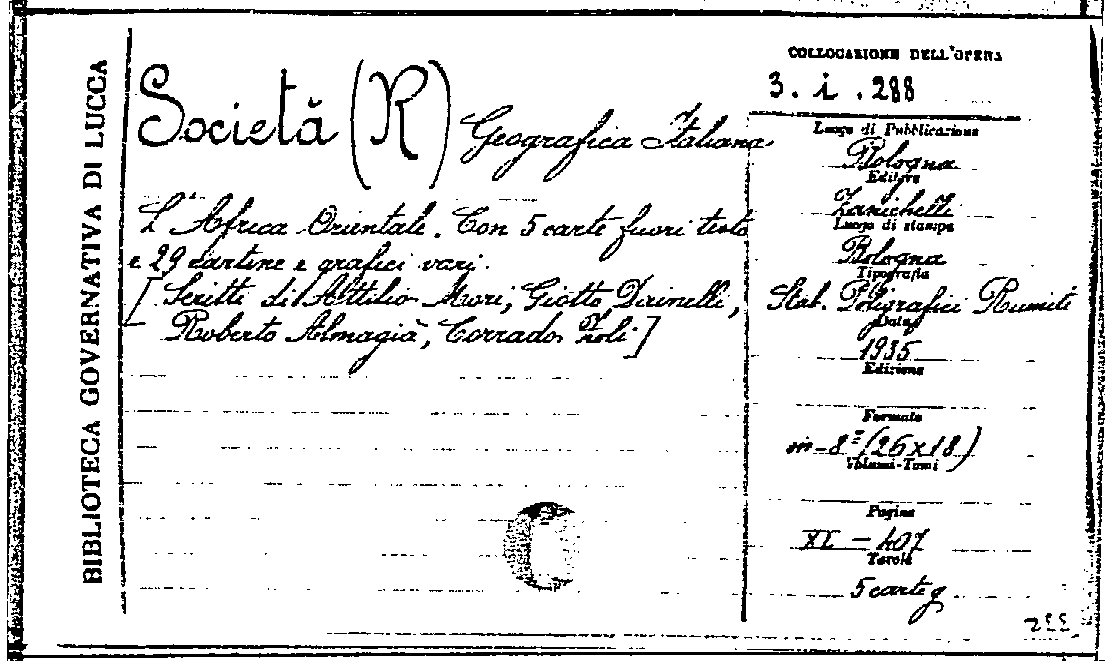 BIBLIOTECA GOVERNATIVA DI LUCCA
Società (R) Geografica Italiana
L'Africa Orientale. Con 5 carte fuori testo
e 29 cartine e grafici vari.
[Scritti di Attilio Mori, Giotto Dainelli,
Roberto Almagià, Corrado Zoli]
COLLOCAZIONE DELL'OPERA
3. i. 288
Luogo di Pubblicazione
Bologna
Editore
Zanichelli
Luogo di stampa
Bologna
Tipografia
Stab. Poligrafici Riuniti
Data
1935
Edizione
Formato
in-8° (26x18)
Volumi-Tomi
Pagine
XI - 407
Tavole
5 carte g